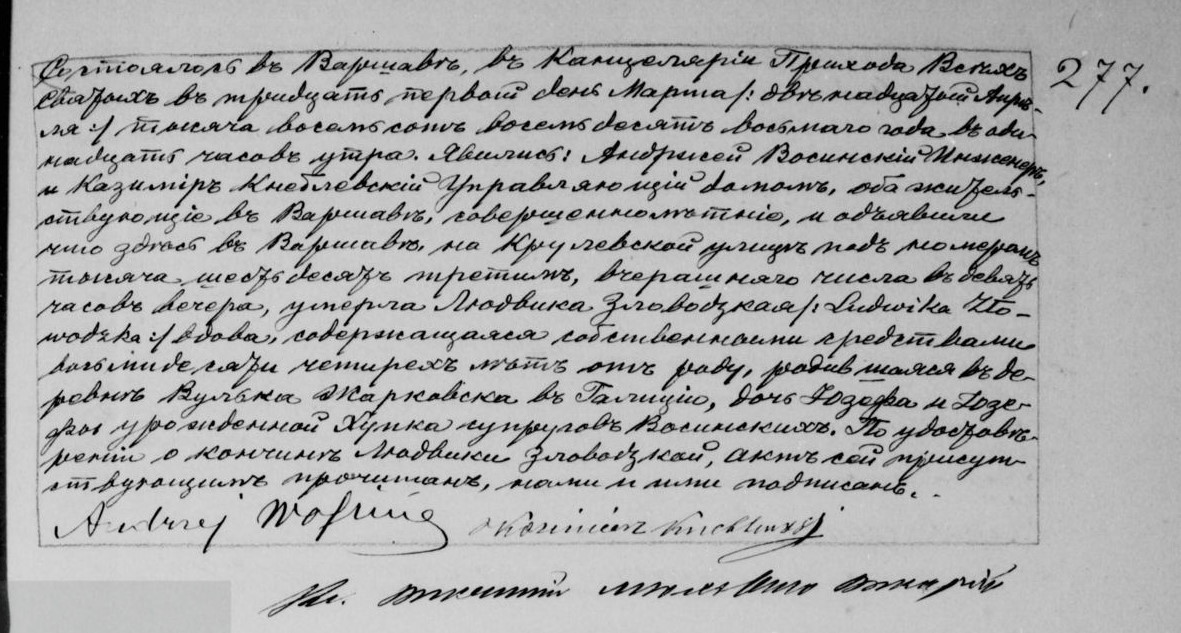 Состоялось въ Варшавѣ, въ Канцеляріи Прихода Всѣхъ
Святыхъ въ тридцать первый день Марта /: двѣнадцатый Апрѣ-
ля :/ тысяча восемьсотъ восемьдесятъ восьмаго года въ оди-
надцать часовъ утра. Явились: Андржей Восинскій Инженеръ,
и Казиміръ Кнебловскій Управляющій домомъ, оба житель-
ствующіе въ Варшавѣ, совершеннолѣтніе, и объявили
что здѣсь въ Варшавѣ, на Крулевской улицѣ подъ номеромъ
тысяча шестьдесятъ третимъ, вчерашняго числа въ девять
часовъ вечера, умерла Людвика Зловодзкая /: Ludwika Zło-
wodzka :/ вдова, содержащаяся собственными средствами
восьмидесяти четырехъ лѣтъ отъ роду, родившаяся въ де-
ревнѣ Вулька Жарковска въ Галиціи, дочь Юзефа и Юзе-
фы урожденной Хупка супруговъ Восинскихъ. По удостовѣ-
реніи о кончинѣ Людвики Зловодзкой, актъ сей присут-
ствующимъ прочитанъ, нами и ими подписанъ.
Andrzej
277.